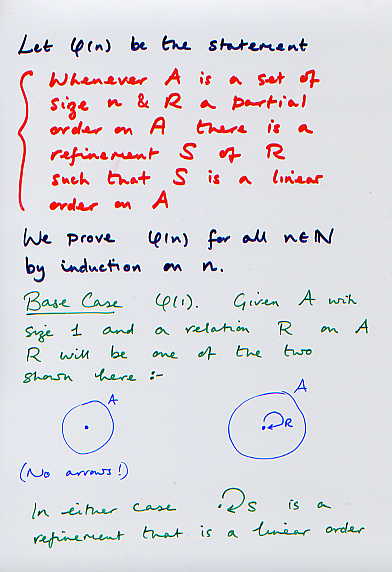 Let φ(n) be the statement
Whenever A is a set of
size n & R a partial
order on A there is a
refinement S of R
such that S is a linear
order on A
We prove φ(n) for all n∈ℕ
by induction on n.
Base Case φ(1). Given A with
size 1 and a relation R on A
R will be one of the two
shown here :-
A
A
R
(No arrows!)
In either case S is a
refinement that is a linear order